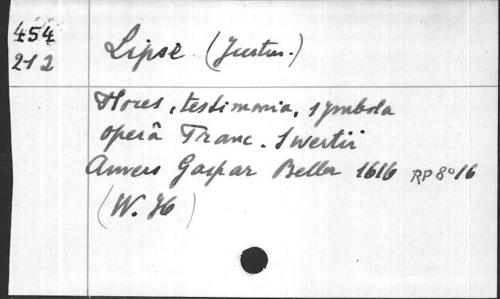 454
212
Lipse (Justus.)
Flores, testimonia, symbola
operâ Franc. Swertii
Anvers Gaspar Beller 1616 RP 8° 16
(W. H)